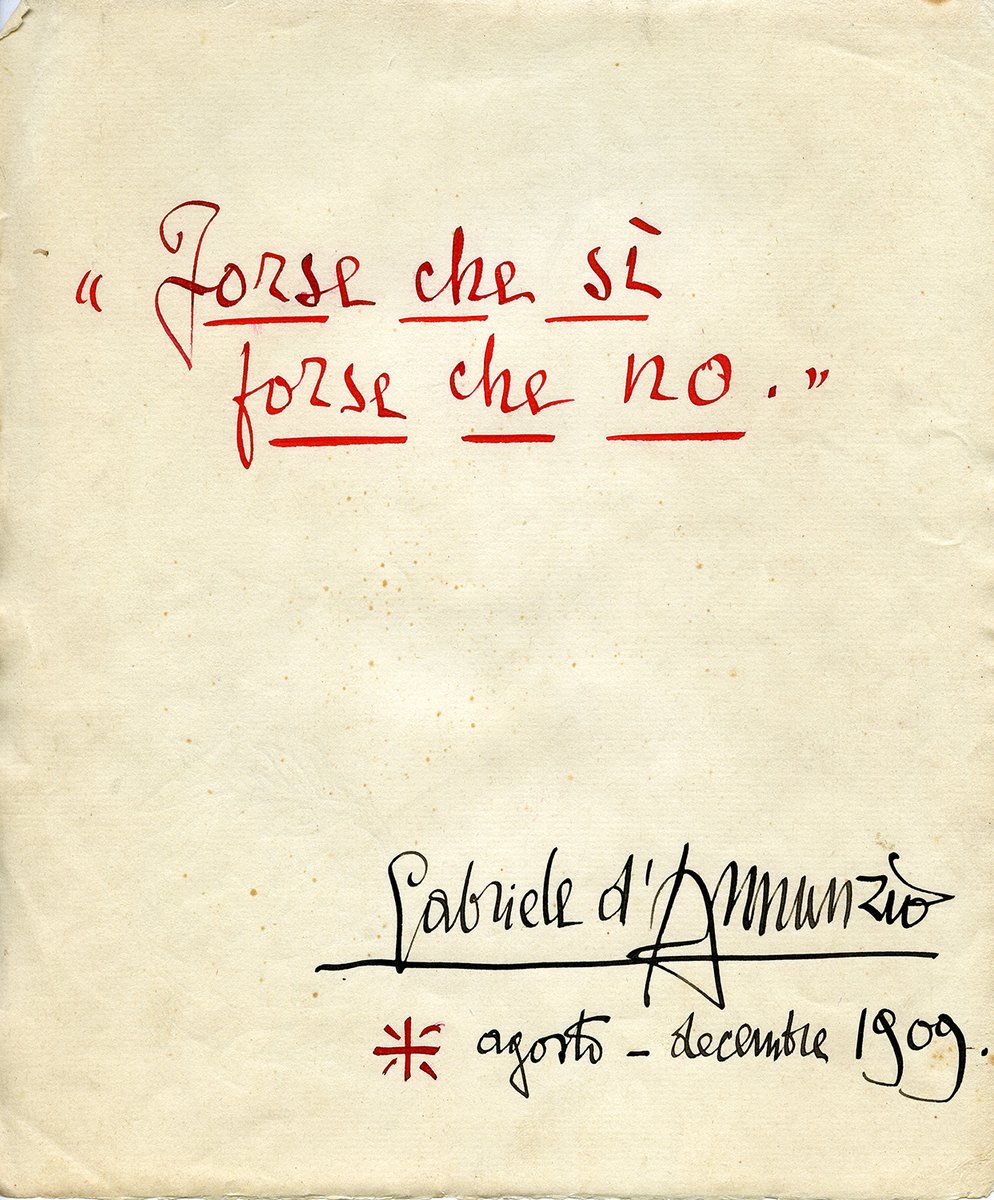 « Forse che sì
forse che no. »
Gabriele d'Annunzio
* agosto - decembre 1909.